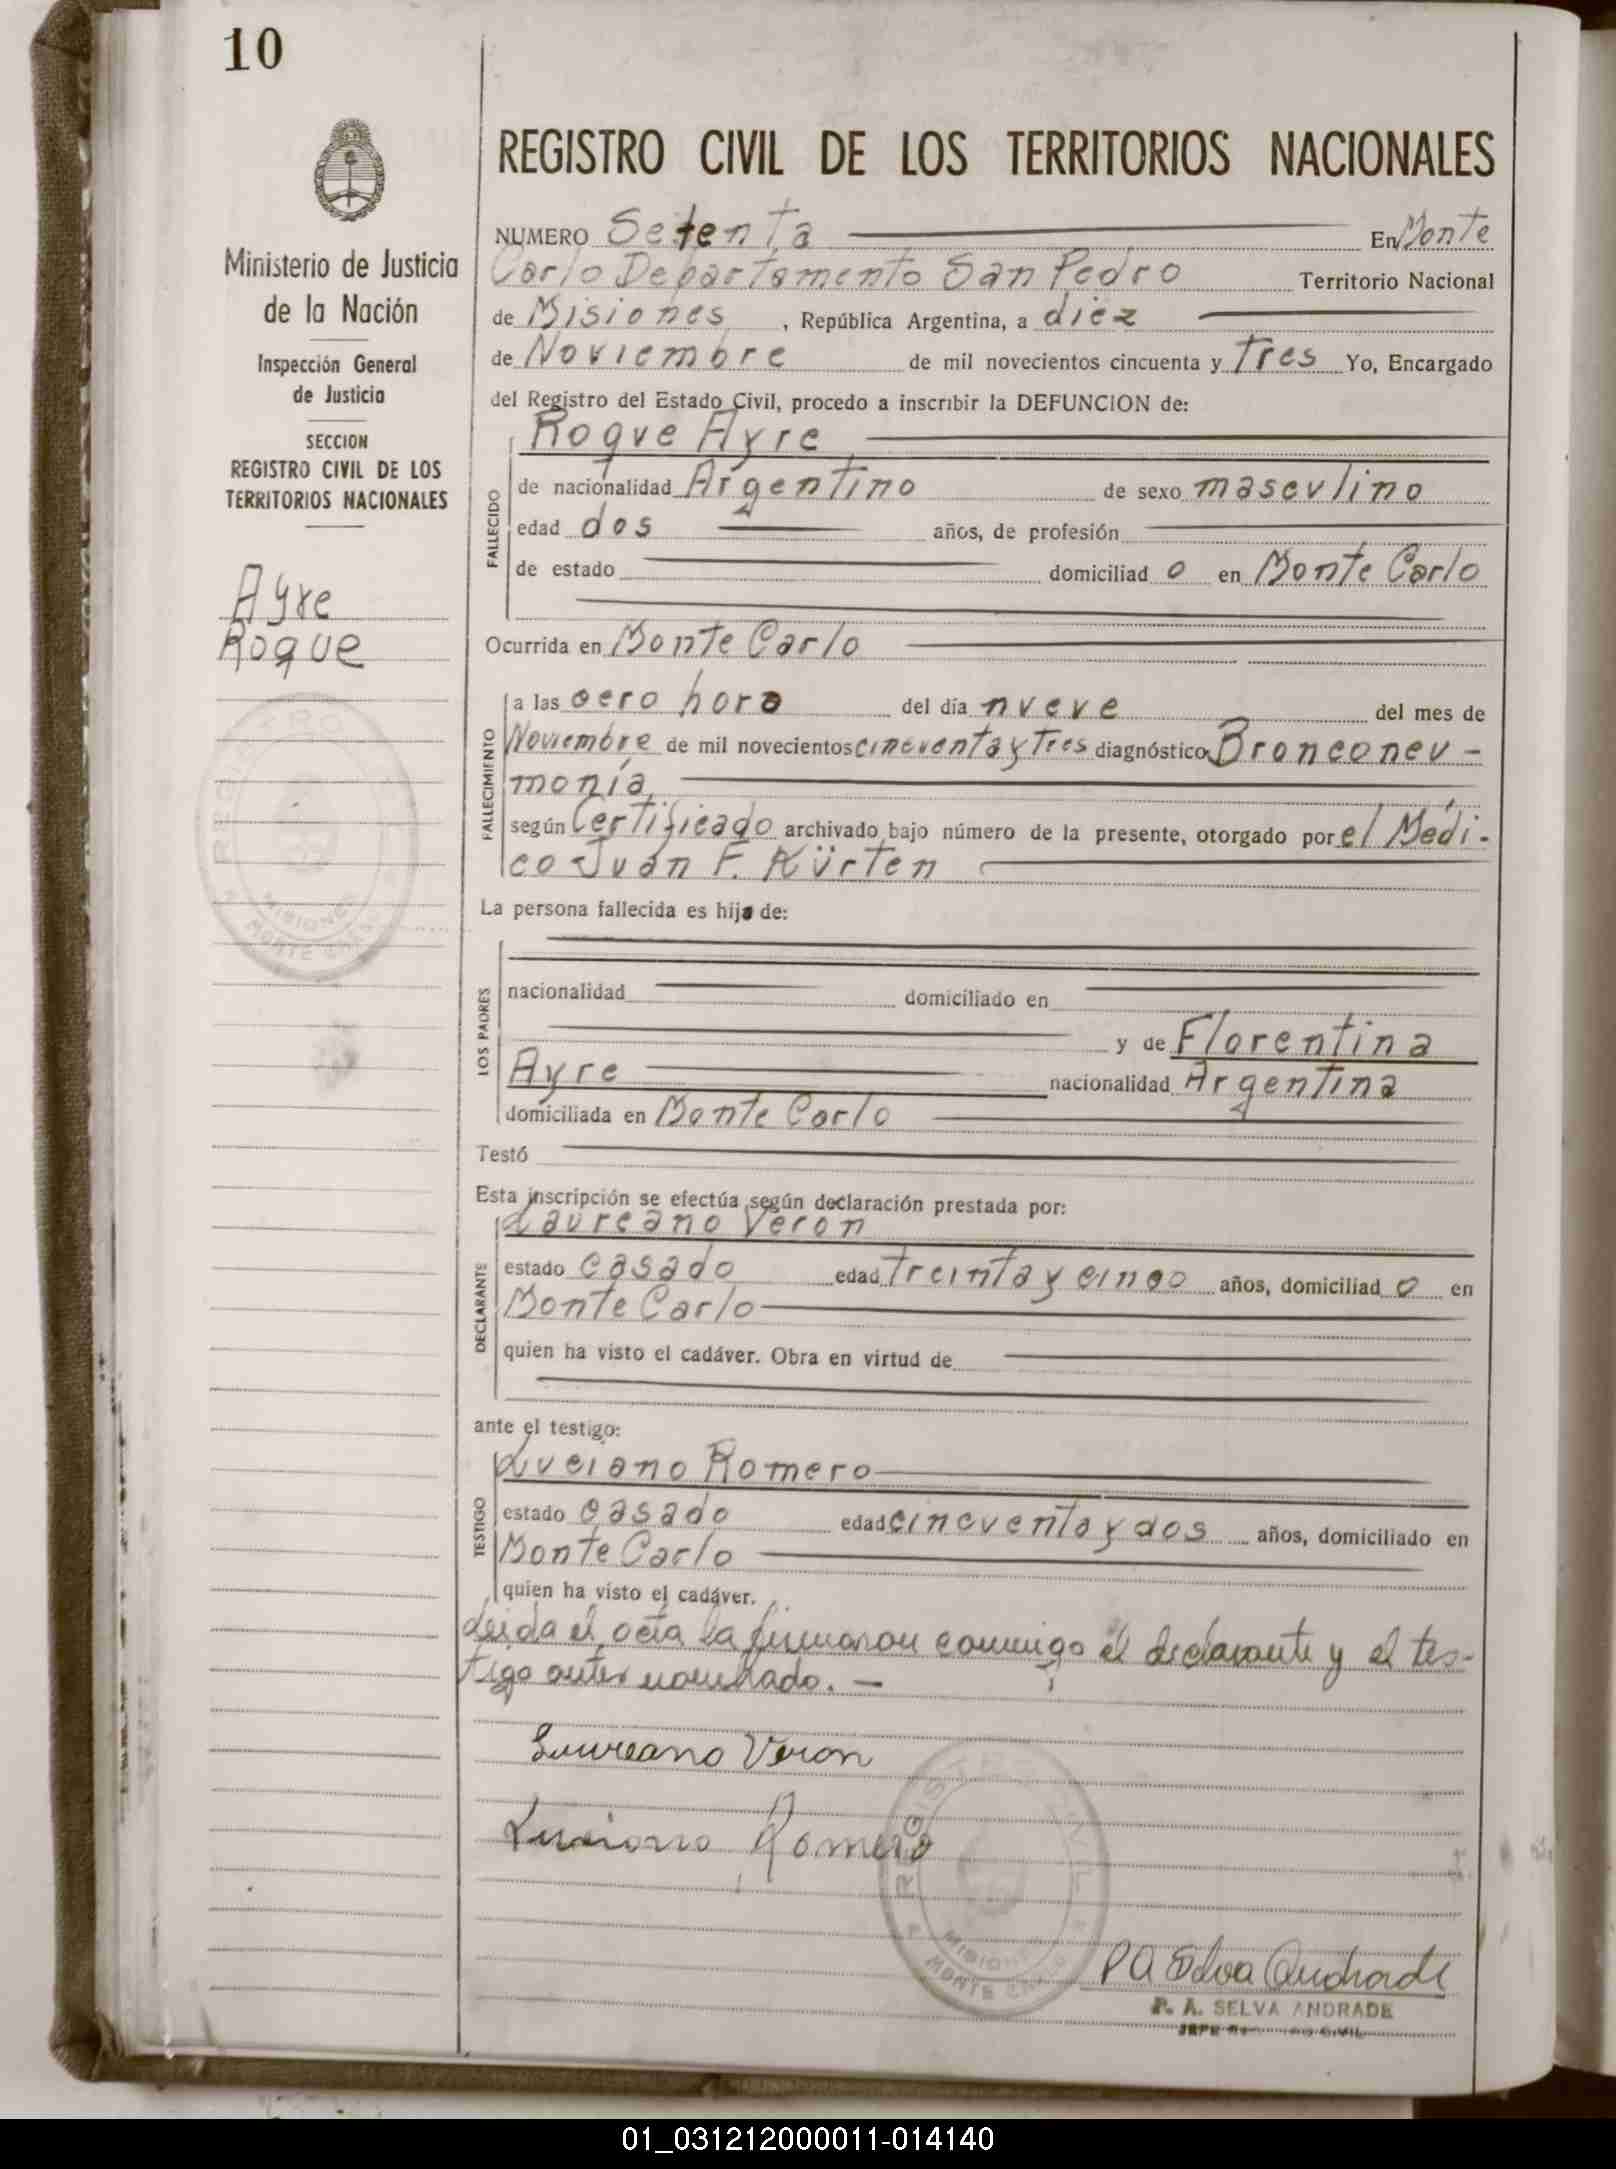 10
Ministerio de Justicia
de la Nación
Inspección General
de Justicia
SECCION
REGISTRO CIVIL DE LOS
TERRITORIOS NACIONALES
Ayre
Roque
REGISTRO CIVIL DE LOS TERRITORIOS NACIONALES
NUMERO Setenta En Monte
Carlo Departamento San Pedro Territorio Nacional
de Misiones, República Argentina, a diez
de Noviembre de mil novecientos cincuenta y Tres Yo, Encargado
del Registro del Estado Civil, procedo a inscribir la DEFUNCION de:
Roque Ayre
FALLECIDO
de nacionalidad Argentino de sexo masculino
edad dos años, de profesión
de estado domiciliad o en Monte Carlo
Ocurrida en Monte Carlo
FALLECIMIENTO
a las cero hora del día nueve del mes de
Noviembre de mil novecientos cincuenta y Tres diagnóstico Bronconeu-
monía
según Certificado archivado bajo número de la presente, otorgado por el Médi-
co Juan F. Kürten
La persona fallecida es hijo de:
LOS PADRES
nacionalidad domiciliado en
y de Florentina
Ayre nacionalidad Argentina
domiciliada en Monte Carlo
Testó
Esta inscripción se efectúa según declaración prestada por:
Laureano Veron
DECLARANTE
estado casado edad treinta y cinco años, domiciliad o en
Monte Carlo
quien ha visto el cadáver. Obra en virtud de
ante el testigo:
Luciano Romero
TESTIGO
estado casado edad cincuenta y dos años, domiciliado en
Monte Carlo
quien ha visto el cadáver.
Leida el acta la firmaron conmigo el declarante y el tes-
tigo antes nombrado. —
Laureano Veron
Luciano Romero
REGISTRO CIVIL
MISIONES
MONTE CARLO
PA Selva Andrade
P. A. SELVA ANDRADE
JEFE REGISTRO CIVIL
01_031212000011-014140